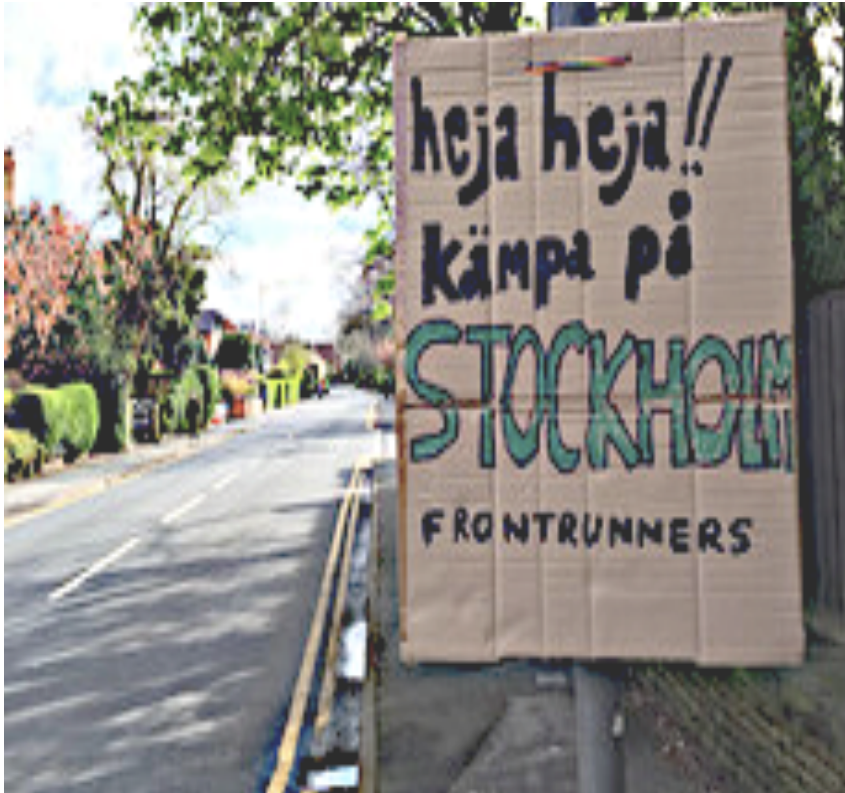 heja heja!!
kämpa på
STOCKHOLM
FRONTRUNNERS